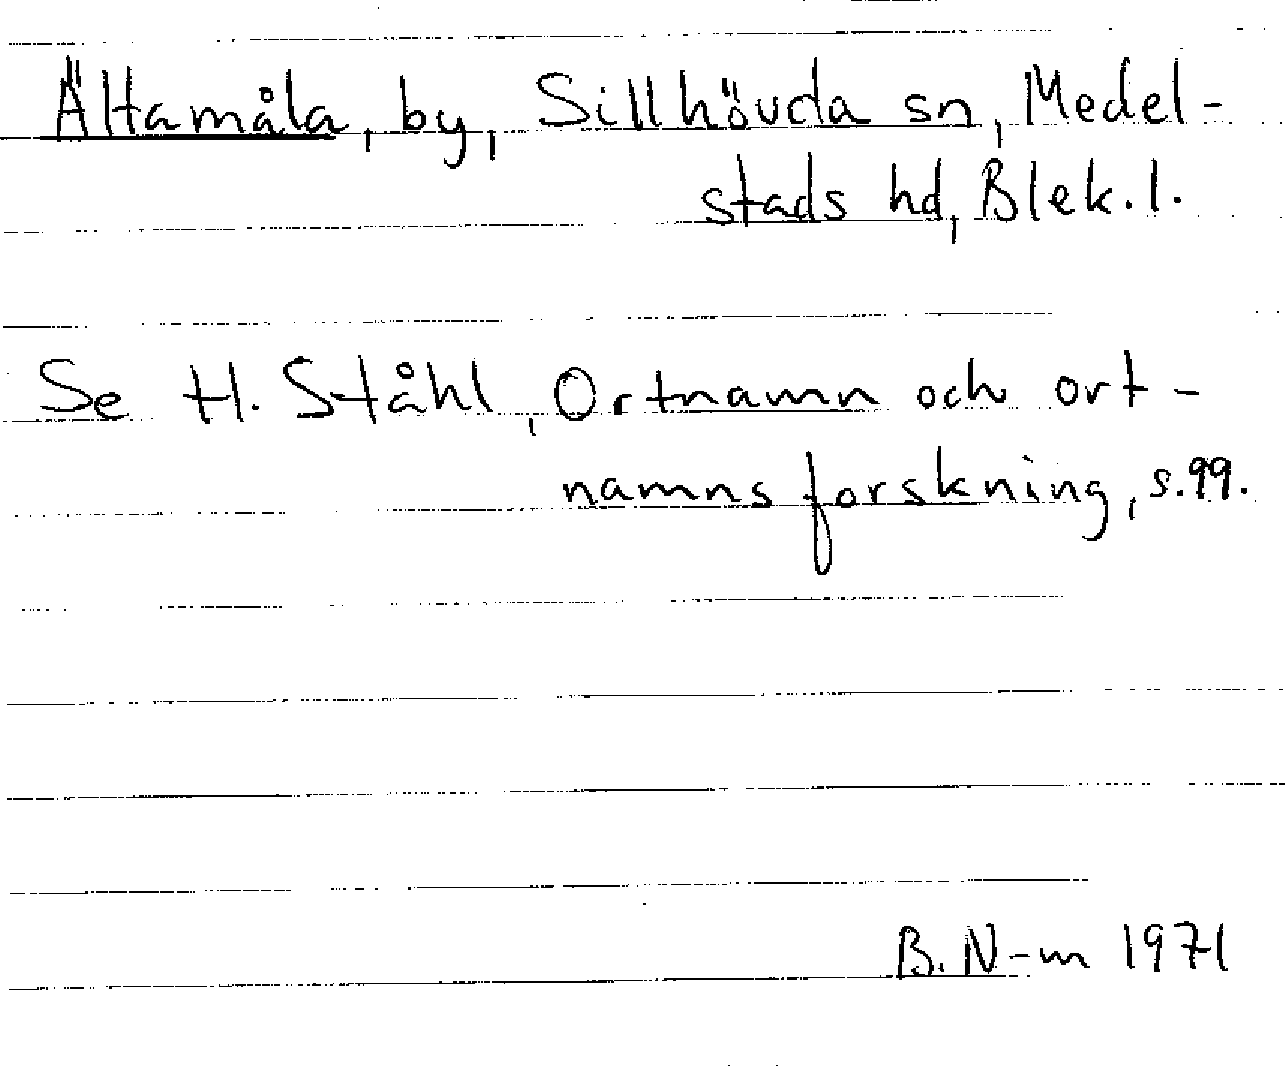 Ältamåla, by, Sillhövda sn, Medel-
stads hd, Blek. l.
Se H. Ståhl, Ortnamn och ort-
namnsforskning, s. 99.
B. N-m 1971